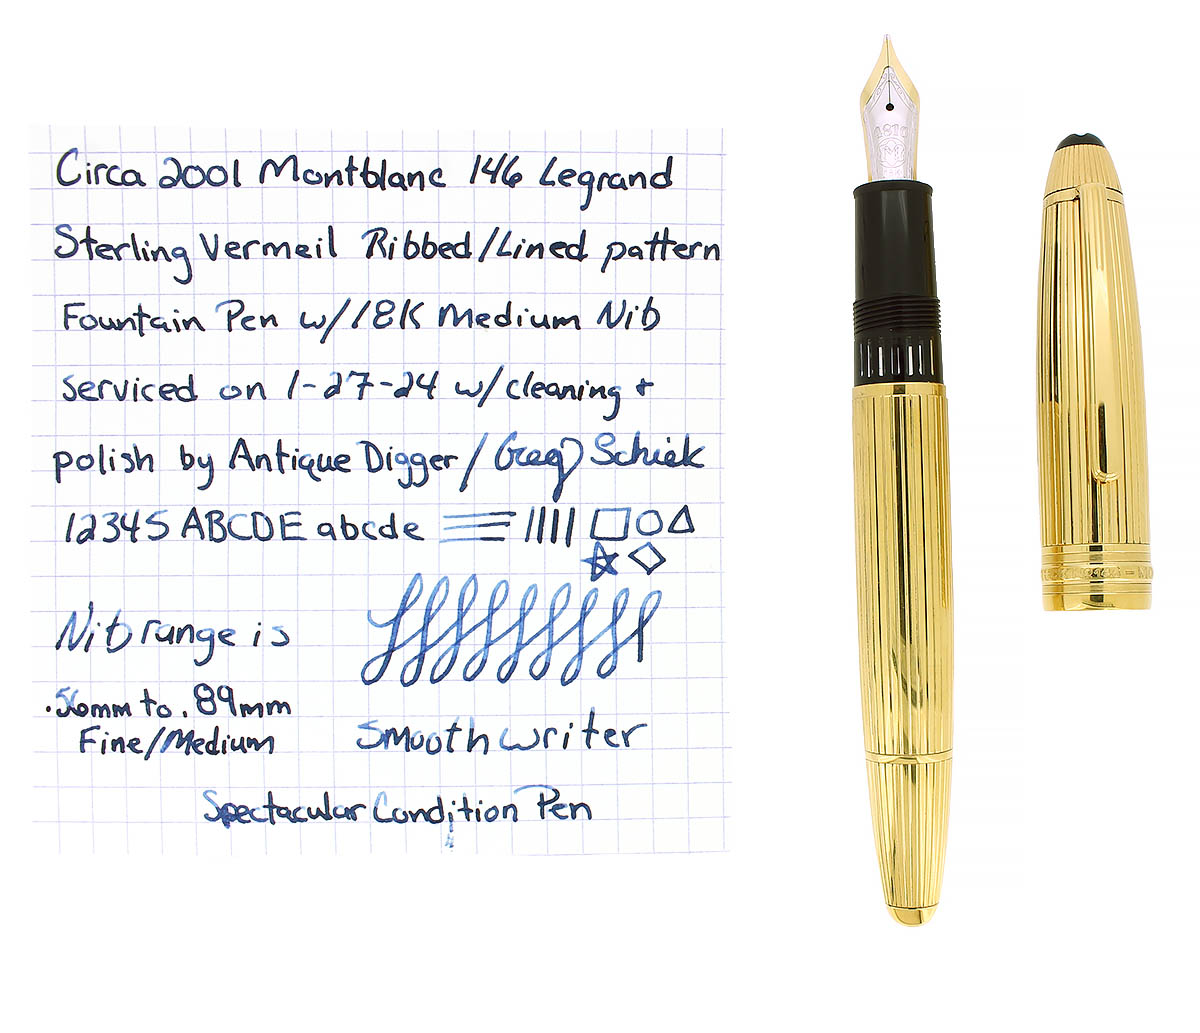 Circa 2001 Montblanc 146 Legrand
Sterling Vermeil Ribbed/Lined pattern
Fountain Pen w/18K Medium Nib
serviced on 1-27-24 w/cleaning +
polish by Antique Digger/Greg Schiek
12345 ABCDE abcde
Nib range is
.56mm to .89mm
Fine/Medium
Smooth writer
Spectacular Condition Pen
4810
M